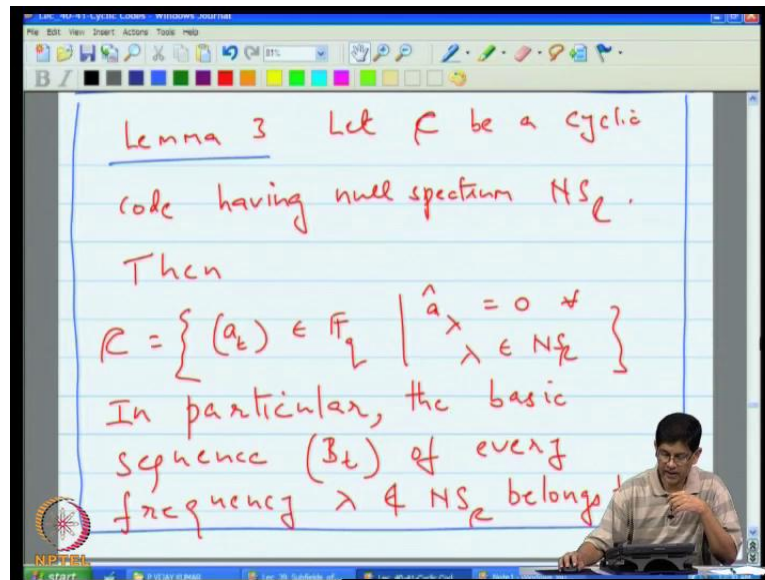 Lec_40-41-Cyclic Codes - Windows Journal
File Edit View Insert Actions Tools Help
81%
B I
Lemma 3 Let C be a cyclic
code having null spectrum NS_C.
Then
C = { (a_t) ∈ F_q | â_λ = 0 ∀ λ ∈ NS_C }
In particular, the basic
sequence (B_t) of every
frequency λ ∉ NS_C belongs
NPTEL
start
P VIJAY KUMAR
Lec_39_Subfields of...
Lec_40-41-Cyclic Cod...